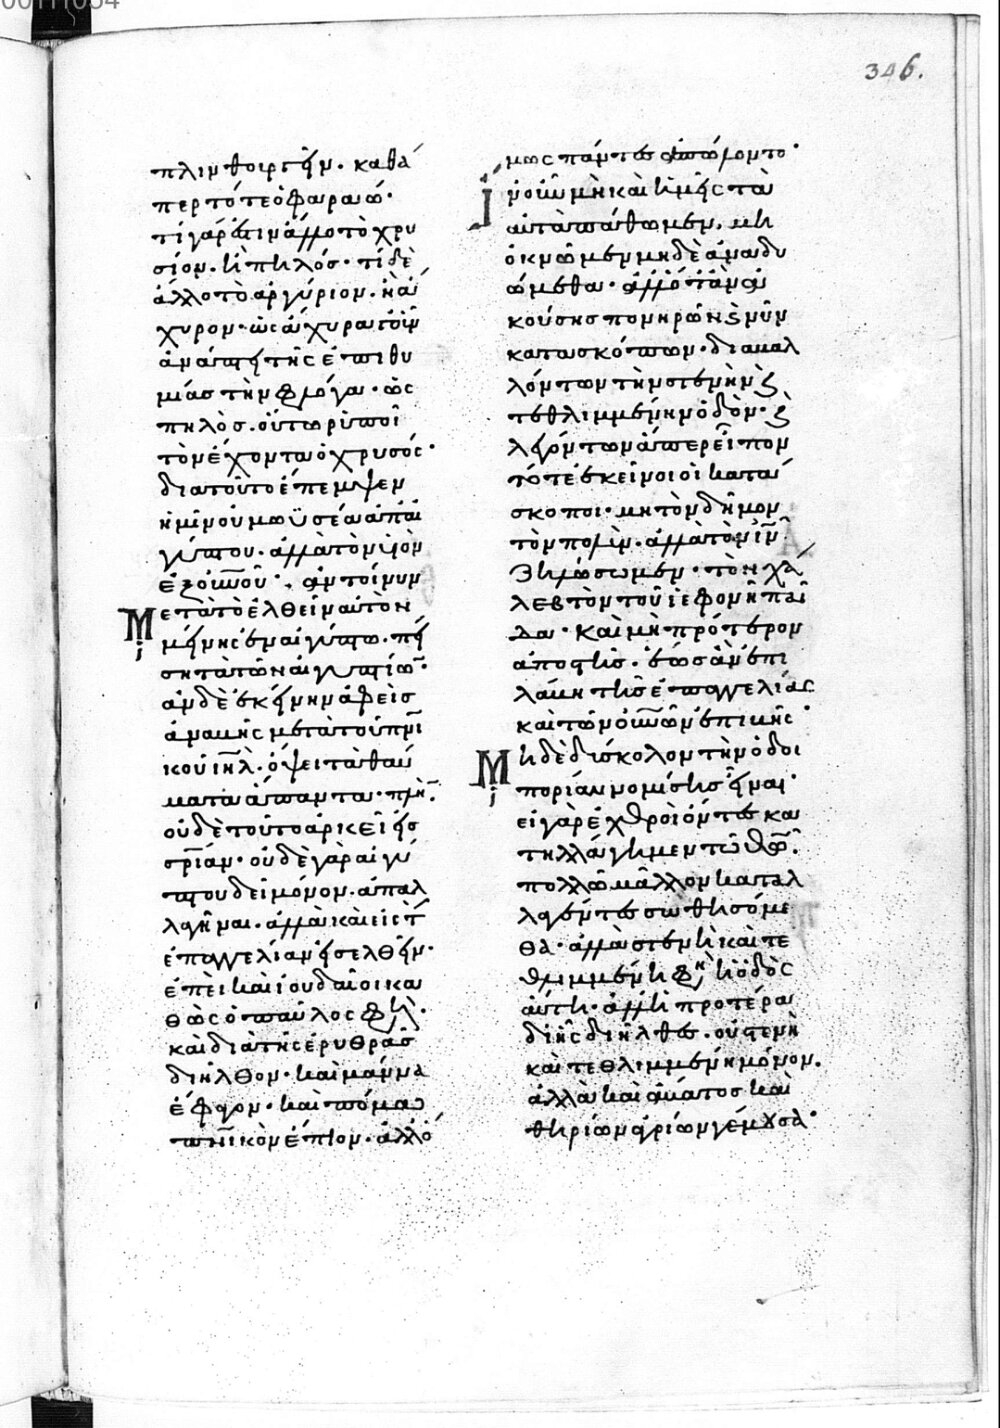 346.
πλινθουργεῖν· καθά
περ τότε ὁ φαραώ·
τί γάρ ἐστιν ἄλλο τὸ χρυ
σίον· ἢ πηλός· τί δὲ
ἄλλο τὸ ἀργύριον· ἢ ἄ
χυρον· ὡς ἄχυρα γοῦν
ἀνάπτει τῆς ἐπιθυ
μίας τὴν φλόγα· ὡς
πηλὸς οὕτω ῥυποῖ
τὸν ἔχοντα ὁ χρυσός·
διὰ τοῦτο ἔπεμψεν
ἡμῖν οὐ μωϋσέα ἀπ' αἰ
γύπτου· ἀλλὰ τὸν υἱὸν
ἐξ οὐνοῦ· ἂν τοίνυν
μετὰ τὸ ἐλθεῖν αὐτὸν
μένῃς ἐν αἰγύπτω· πεί
ση τὰ τῶν αἰγυπτίων·
ἂν δὲ ἐκείνην ἀφεὶς
ἀναβῇς μετὰ τοῦ πνι
κοῦ ιηλ· ὄψει τὰ θαύ
ματα ἅπαντα· πλὴν
οὐδὲ τοῦτο ἀρκεῖ εἰς
σριαν· οὐδὲ γὰρ αἰγύ
πτου δεῖ μόνον ἀπαλ
λαγῆναι· ἀλλὰ καὶ εἰς τ
ἐπαγγελίαν εἰσελθεῖν·
ἐπεὶ καὶ ἰουδαῖοι κα
θὼς ὁ παῦλος φησί·
καὶ διὰ τῆς ἐρυθρᾶς
διῆλθον· καὶ μάννα
ἔφαγον· καὶ πόμα
πνικὸν ἔπιον· ἀλλ' ὅ
μως πάντες ἀπώλοντο·
ἵν' οὖν μὴ καὶ ἡμεῖς τὰ
αὐτὰ πάθωμεν, μὴ
ὀκνῶμεν μηδὲ ἀναδυ
ώμεθα· ἀλλ' ὅταν ἀ
κούσης πονηρῶν καὶ νῦν
κατασκόπων· διαβαλ
λόντων τὴν στενὴν καὶ
τεθλιμμένην ὁδόν· καὶ
λεγόντων ἅπερ εἶπον
τότε ἐκεῖνοι οἱ κατά
σκοποι· μὴ τὸν δῆμον
τὸν πολὺν· ἀλλὰ τὸν ιην
ζηλώσωμεν· τὸν χά
λεβ τὸν τοῦ ἰεφονῆ παῖ
δα· καὶ μὴ πρότερον
ἀποστῆς· ἕως ἂν ἐπι
λάβη τῆς ἐπαγγελίας
καὶ τῶν οὐνων ἐπιβῆς·
μηδὲ δύσκολον τὴν ὁδοι
πορίαν νομίσης εἶναι·
εἰ γὰρ ἐχθροὶ ὄντες κα
τηλλάγημεν τῶ θω·
πολλῶ μᾶλλον καταλ
λαγέντες σωθησόμε
θα· ἀλλὰ στενὴ καὶ τε
θλιμμένη φησὶν ἡ ὁδὸς
αὕτη· ἀλλ' ἡ προτέρα
δι' ἧς διῆλθες· οὐ στενὴ
καὶ τεθλιμμένη μόνον.
ἀλλὰ καὶ ἄβατος καὶ
θηρίων ἀγρίων γέμουσα·